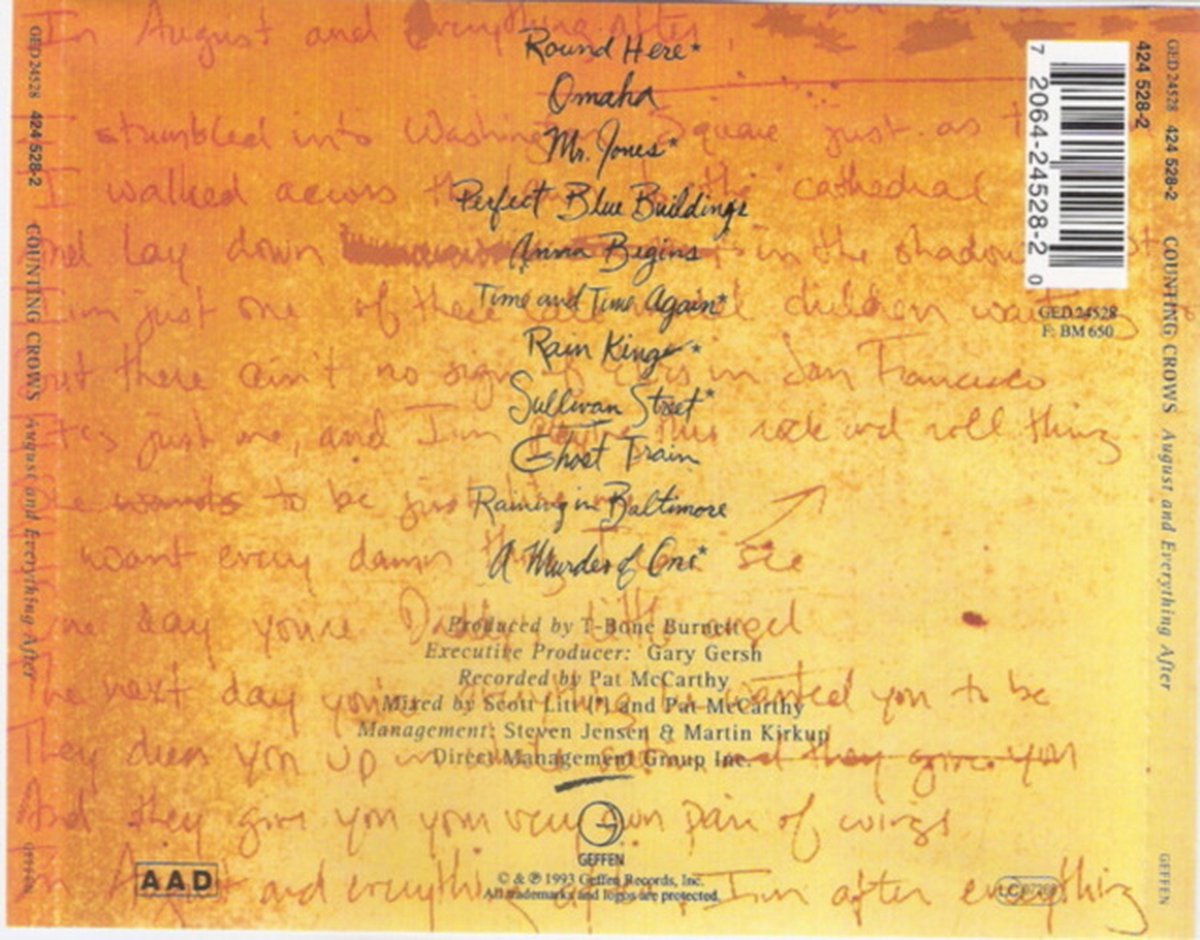 In August and Everything After,
Round Here*
Omaha
I stumbled into Washington Square just as
Mr. Jones*
I walked across the cathedral
Perfect Blue Buildings
And lay down in the shadow
Anna Begins
I'm just one of these children
Time and Time Again*
Rain King*
But there ain't no sign of in San Francisco
Sullivan Street*
It's just me, and I'm this rock and roll thing
Ghost Train
wants to be just
Raining in Baltimore
want every damn thing I see
A Murder of One*
One day you're little angel
Produced by T-Bone Burnett
Executive Producer: Gary Gersh
Recorded by Pat McCarthy
The next day you're wanted you to be
Mixed by Scott Litt [*] and Pat McCarthy
Management: Steven Jensen & Martin Kirkup
They dress you up in and they give you
Direct Management Group Inc.
And they give you your very own pair of wings
GEFFEN
AAD
© & ℗ 1993 Geffen Records, Inc.
In August and everything after, I'm after everything
All trademarks and logos are protected.
7 2064-24528-2 0
GED 24528
F: BM 650
GED 24528 424 528-2 COUNTING CROWS August and Everything After GEFFEN
424 528-2
GED 24528 424 528-2 COUNTING CROWS August and Everything After GEFFEN